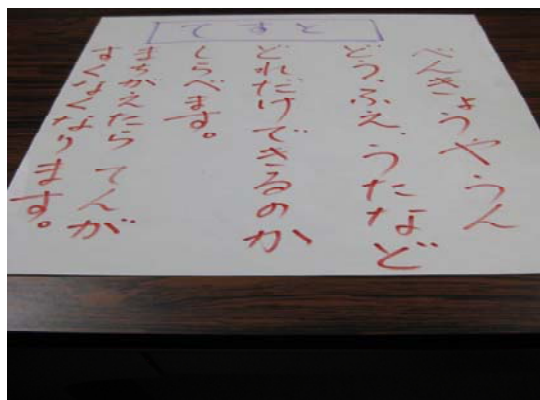 てすと
べんきょうやうん
どう、ふえ、うたなど
どれだけできるのか
しらべます。
まちがえたら てんが
すくなくなります。